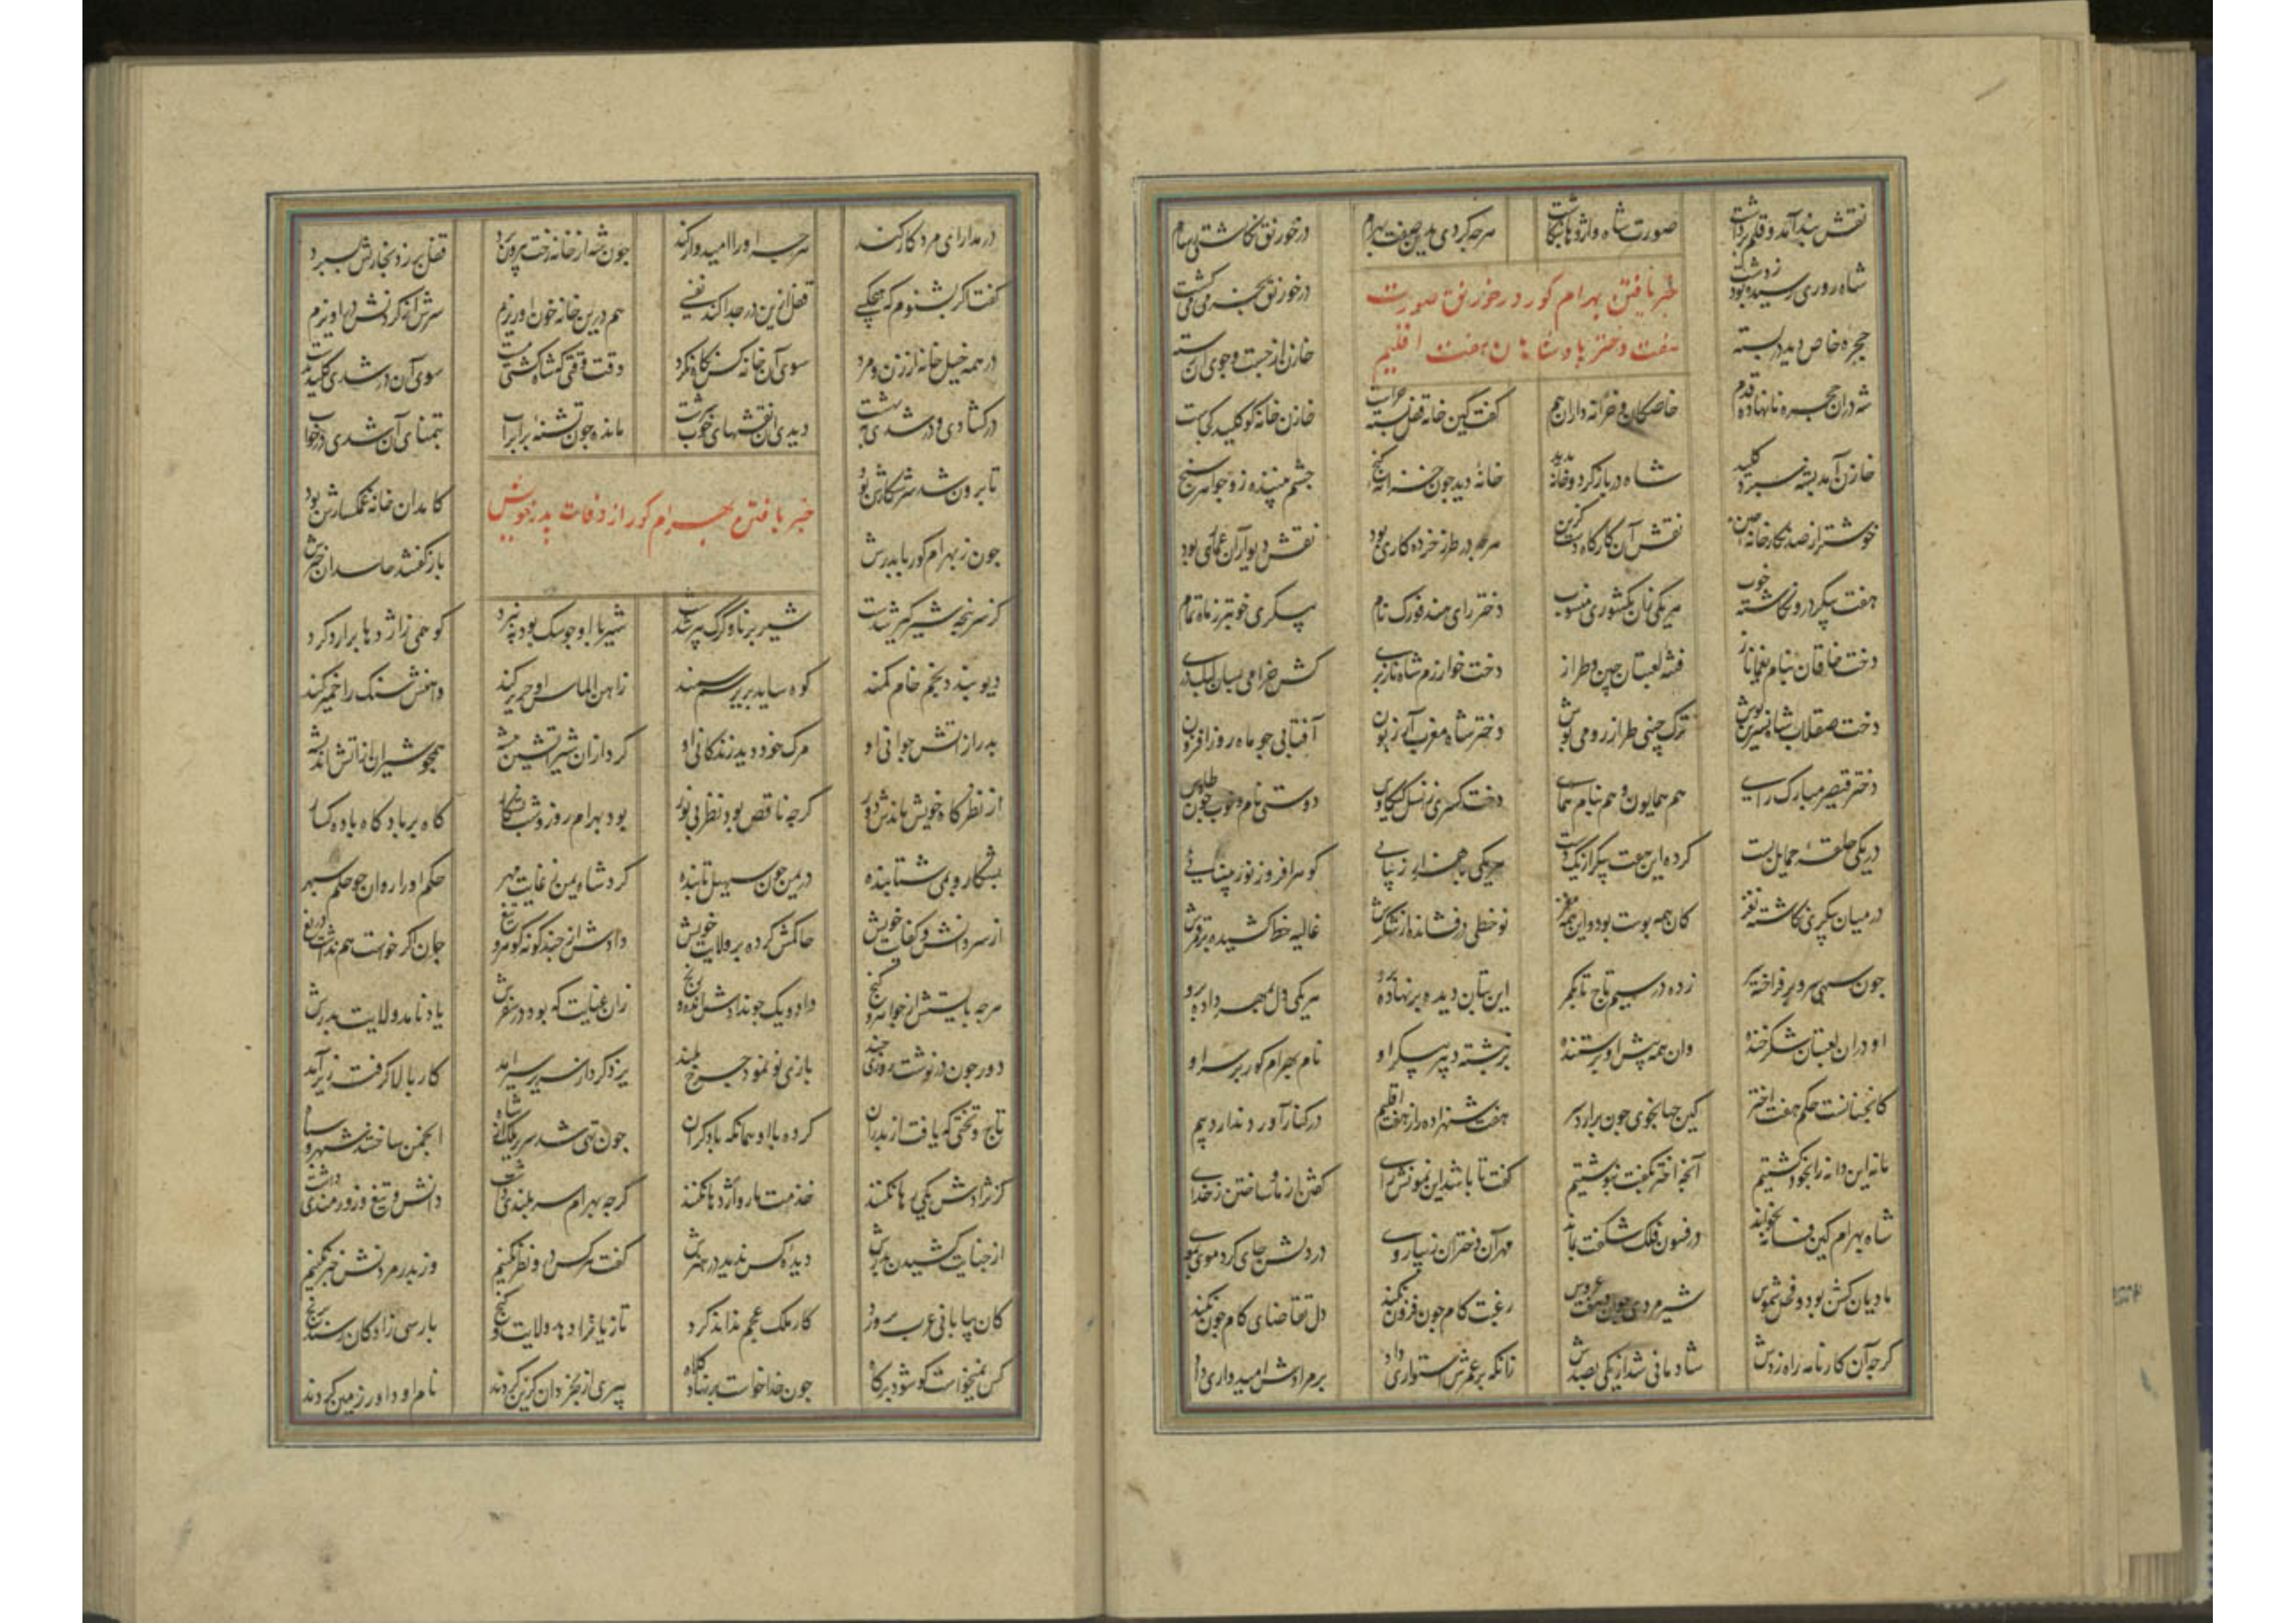 نقش بند آمد و قلم برداشت صورت شاه و اژدها بنگاشت هرچه کردی بدین صفت بهرام در خورنق نگاشتی رسام
شاه روزی رسیده بود ز دشت در خورنق بخرمی می گشت
خبر یافتن بهرام کور در خورنق صورت
هفت دختر پادشاهان هفت اقلیم
حجره خاص دید در بسته خازن از جست و جوی آن رسته
شه در ان حجره نانهاده قدم خاصکان و خزانه داران هم کفت کین خانه قفل بسته چراست خازن خانه کو کلید کجاست
خازن آمد بشه سپرد کلید شاه در باز کرد و خانه بدید خانه دید چون خزانه کنج چشم بیننده زو جواهر سنج
خوشتر از صد نکارخانه چین نقش آن کارگاه دست کزین هرچه در طرز خرده کاری بود نقش دیوار آن عماری بود
هفت پیکر درو نکاشته خوب هر یکی زان بکشوری منسوب دختر رای هند فورک نام پیکری خوبتر ز ماه تمام
دخت خاقان بنام یغماناز فتنه لعبتان چین و طراز دخت خوارزم شاه نازپری کش خرامی بسان کبک دری
دخت صقلاب شاه نسرین نوش ترک چینی طراز رومی پوش دختر شاه مغرب آزریون آفتابی چو ماه روز افزون
دختر قیصر مبارک رای هم همایون و هم بنام همای دخت کسری ز نسل کیکاوس دوستی نام و خوب چون طاوس
در یکی حلقه حمایل بست کرده این هفت پیکر از یک دست هر یکی با هزار زیبایی کوهر افروز نور بینایی
در میان پیکری نکاشته نغز کان همه پوست بود و این همه مغز نو خطی درفشانده از شکرش غالیه خط کشیده بر قمرش
چون سهی سرو بر فراخته سر زده در سیم تاج تا بکمر این بتان دیده بر نهاده برو هر یکی دل بمهر داده برو
او در ان لعبتان شکرخنده وان همه پیش او پرستنده برنبشته دبیر پیکر او نام بهرام کور بر سر او
کانچنانست حکم هفت اختر کین جهانجوی چون برارد سر هفت شهزاده را ز هفت اقلیم در کنار آورد چو در یتیم
ما نه این دانه را بخود کشتیم آنچه اختر بکفت بنوشتیم کفت تا باشد این نمونش رای کفتن از ما و ساختن ز خدای
شاه بهرام کین فسانه بخواند در فسون فلک شکفت بماند مهر آن دختران زیبا روی در دلش جای کرد موی بموی
مادیان کشن بود و فحل شموس شیرمردی جوان و هفت عروس رغبت کام چون فزون نکند دل تقاضای کام چون نکند
کرچه آن کارنامه راه زدش شادمانی شد از یکی بصدش زانکه بر عمرش استواری داد بر مرادش امیدواری داد
در مدارای مرد کار کند هرچه او را امیدوار کند چون شه از خانه رخت بیرون برد قفل بر زد بخازنش بسپرد
کفت اکر بشنوم که هیچکسی قفل ازین در جدا کند نفسی هم درین خانه خون او ریزم سرش از کردنش در اویزم
در همه خیل خانه از زن و مرد سوی آن خانه کس نکاه نکرد وقت وقتی که شاه کشتی مست سوی آن در شدی کلید بدست
در کشادی و در شدی ببهشت دیدی آن نقشهای خوب سرشت مانده چون تشنه برابر آب بتمنای آن شدی در خواب
تا برون شد سر شکارش بود کامدان خانه غمکسارش بود
خبر یافتن بهرام کور از وفات پدر خویش
چون ز بهرام کور با پدرش باز کفتند حاسدان خبرش
کز سر پنجه شیر کیر شدست شیر برنا و کرک پیر شدست شیر با او چو سک بود بنبرد کو همی ز اژدها برارد کرد
دیو بندد بخم خام کمند کوه ساید بزیر سم سمند ز آهن الماس او حریر کند واهنش سنک را خمیر کند
پدر از آتش جوانی او مرک خود دید زندکانی او کرد از ان شیر آتشین بیشه همچو شیران ز آتش اندیشه
از نظرکاه خویش ماندش دور کرچه ناقص بود نظر بی نور بود بهرام روز و شب بشکار کاه بر باد کاه باده کسار
بشکار و بمی شتابنده در یمن چون سهیل تابنده کرد شاه یمن ز غایت مهر حکم او را روان چو حکم سپهر
از سر دانش و کفایت خویش حاکمش کرده بر ولایت خویش دادش از چند کونه کوهر و تیغ جان اکر خواست هم نداشت دریغ
هرچه بایستش از جواهر و کنج داد و یک جو نداشت انده و رنج زان عنایت که بود در سفرش یاد نامد ولایت پدرش
دور چون در نوشت روزی چند بازی نو نمود چرخ بلند یزدکرد از سریر سیر آمد کار بالا کرفت زیر آمد
تاج و تختی که یافت از پدران کرده با او همانکه با دکران چون تهی شد سریر ملک ز شاه انجمن ساختند شهر و سپاه
کز نژادش یکی رها نکنند خدمت مار و اژدها نکنند کرچه بهرام سربلندی داشت دانش و تیغ و زورمندی داشت
از جنایت کشیدن پدرش دیده کس ندید در هنرش کفت هر کس درو نظر نکنیم وز پدر مردنش خبر نکنیم
کان بیابانی عرب پرورد کار ملک عجم نداند کرد تازیانرا دهد ولایت و کنج پارسی زادکان رسند برنج
کس نمیخواست کو شود بر کاه چون خدا خواست بر نهاد کلاه پیری از بخردان کزین کردند نام او داور زمین کردند